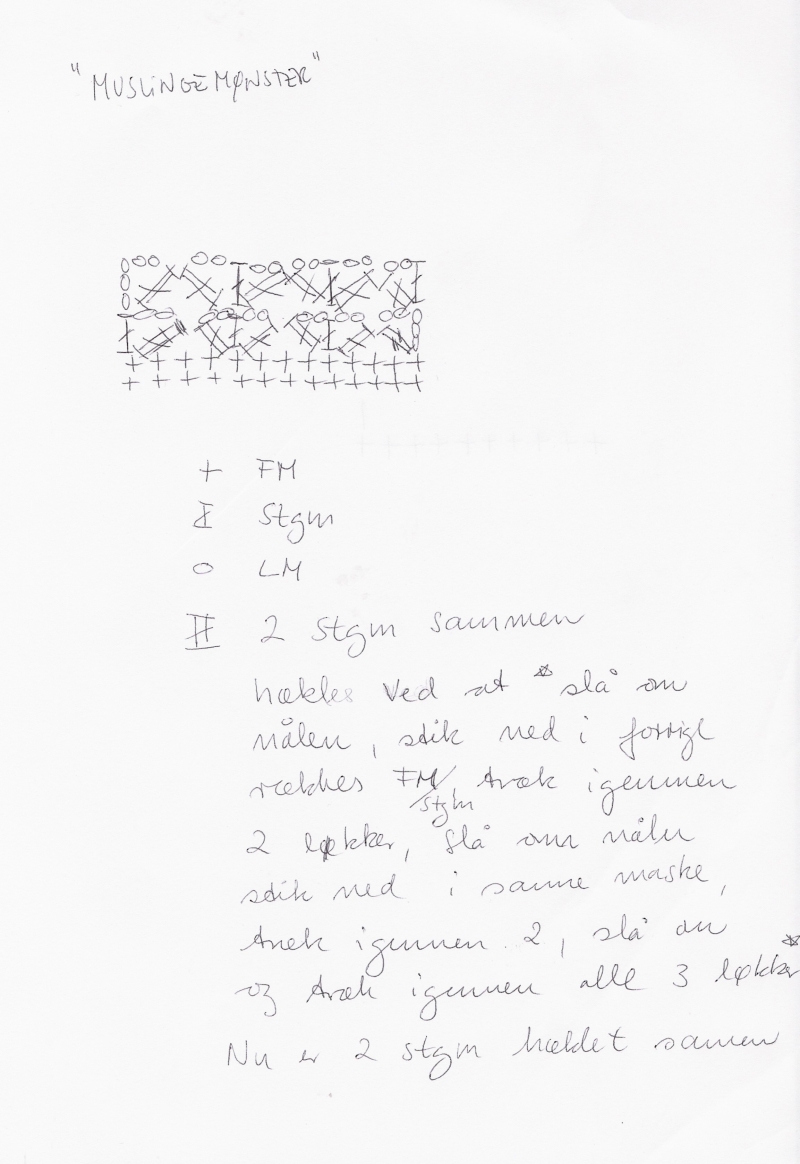 "MUSLINGEMØNSTER"
+ FM
Stgm
o LM
2 Stgm sammen
hækles ved at * slå om
nålen, stik ned i forrige
rækkes FM/stgm, træk igennem
2 løkker, slå om nålen
stik ned i samme maske,
træk igennem 2, slå om
og træk igennem alle 3 løkker *
Nu er 2 stgm hæklet sammen